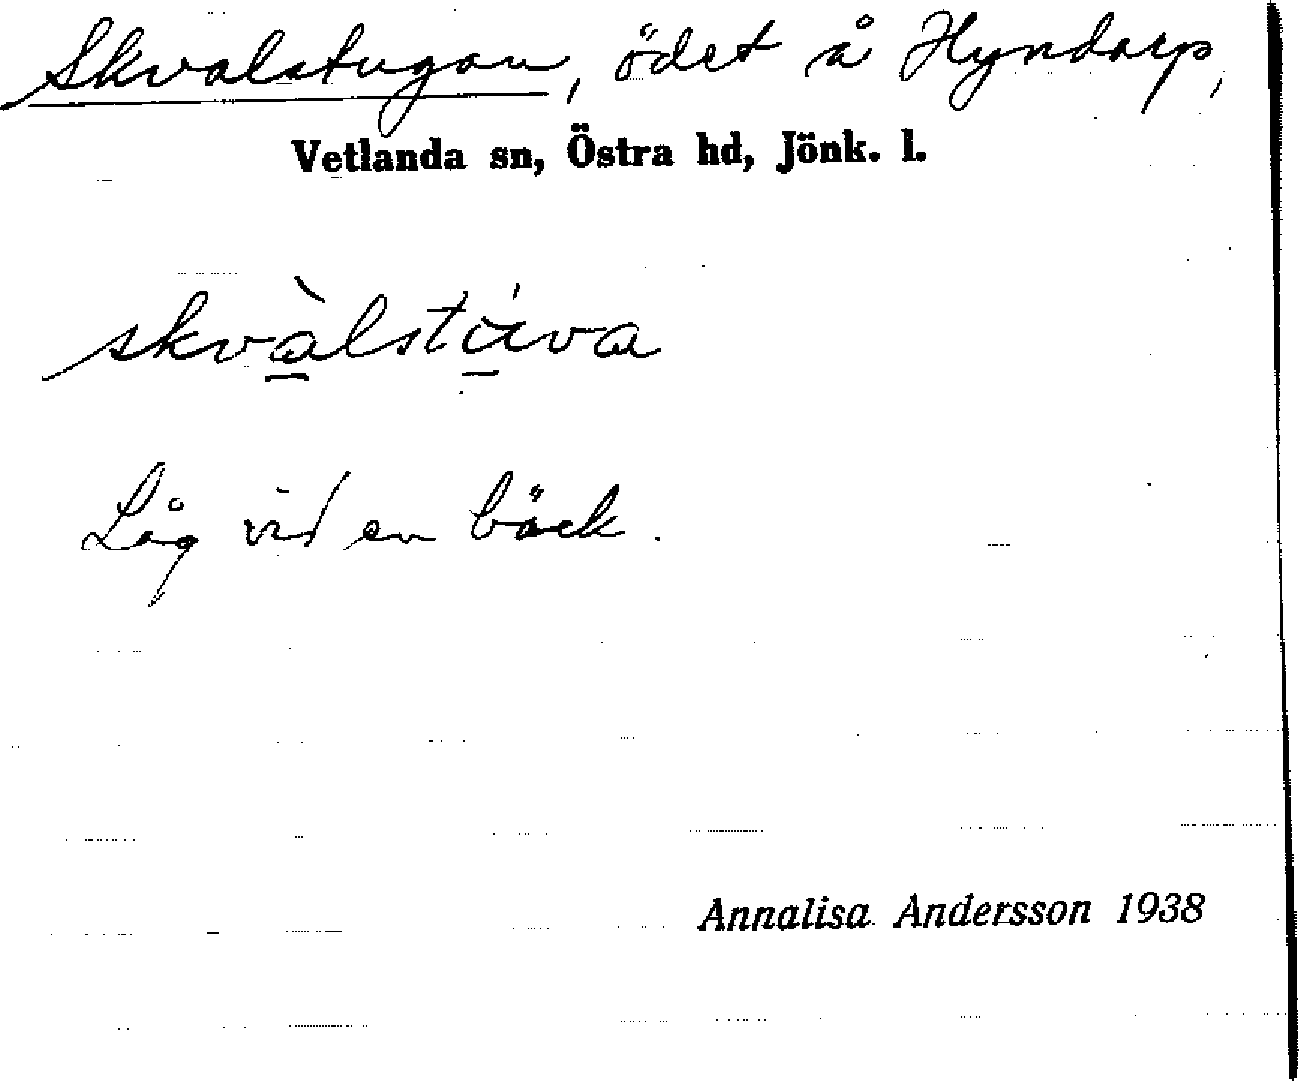 Skvalstugan, ödet å Hyndarp,
Vetlanda sn, Östra hd, Jönk. l.
skvàlstúva
Låg vid en bäck.
Annalisa Andersson 1938